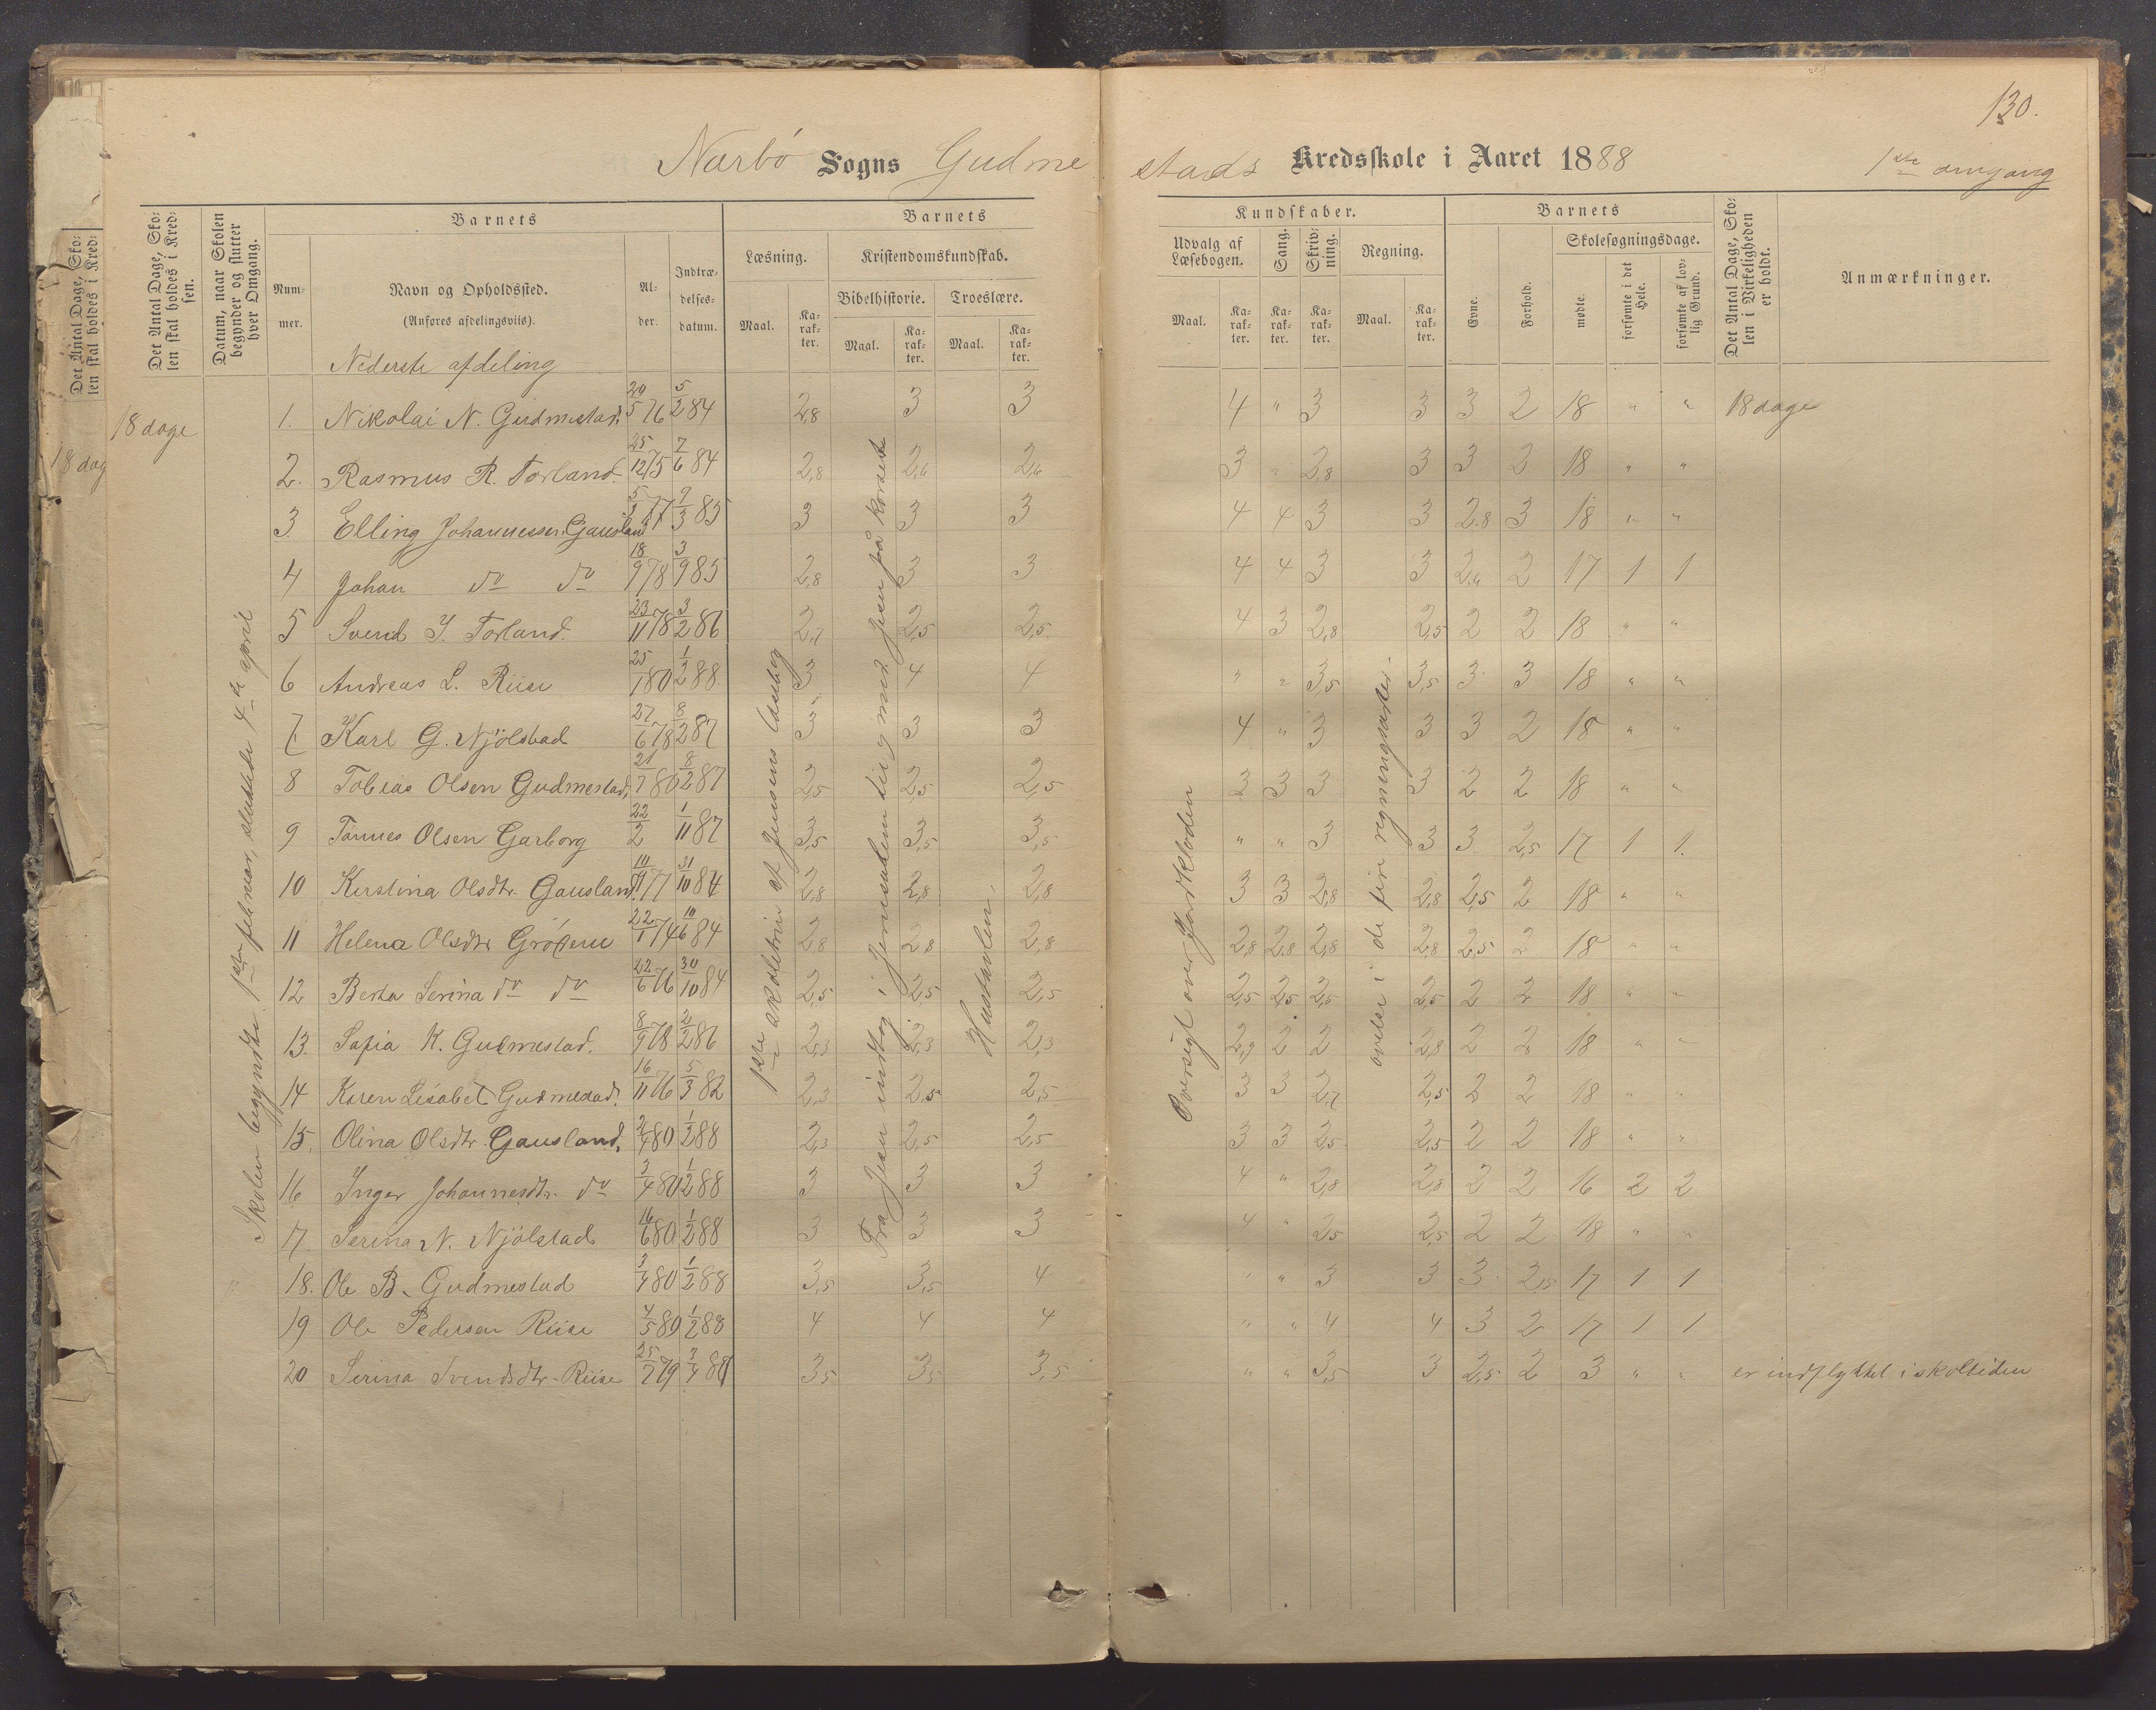 130.
Narbö Sogns Gudme stads Kredsskole i Aaret 1888 1ste omgang
Det Antal Dage, Skolen skal holdes i Kredsen.
Datum, naar Skolen begynder og slutter hver Omgang.
Barnets
Nummer.
Navn og Opholdssted.
(Anføres afdelingsviis).
Alder.
Indtrædelsesdatum.
Barnets
Læsning.
Maal.
Karakter.
Kristendomskundskab.
Bibelhistorie.
Maal.
Karakter.
Troeslære.
Maal.
Karakter.
Kundskaber.
Udvalg af Læsebogen.
Maal.
Karakter.
Sang.
Karakter.
Skrivning.
Karakter.
Regning.
Maal.
Karakter.
Barnets
Evne.
Forhold.
Skolesøgningsdage.
mødte.
forsømte i det Hele.
forsømte af lovlig Grund.
Det Antal Dage, Skolen i Virkeligheden er holdt.
Anmærkninger.
Nederste afdeling
18 dage
Skolen begyndte 1ste februar, sluttede 4de april
1ste skoletrin af Jensens læsebog
Fra Jesu indtog i Jerusalem til og med Jesus på korset
Hustavlen.
Oversigt over Jordkloden
øvelse i de fire regningsarter.
1. Nikolai N. Gudmestad. 20/5 76 5/2 84 2,8 3 3 4 " 3 3 3 2 18 " " 18 dage
2. Rasmus R. Torland. 25/12 75 7/6 84 2,8 2,6 2,6 3 " 2,8 3 3 2 18 " "
3. Elling Johannessen Gausland 5/3 77 9/3 85 3 3 3 4 4 3 3 2.8 3 18 " "
4 Johan do do 18/9 78 3/9 85 2,8 3 3 4 4 3 3 2,6 2 17 1 1
5 Svend T. Torland. 23/11 78 3/2 86 2,7 2,5 2,5 4 3 2,8 2,5 2 2 18 " "
6 Andreas L. Riise 25/1 80 1/2 88 3 4 4 " " 3,5 3,5 3 3 18 " "
7. Karl G. Njölstad 27/6 78 8/2 87 3 3 3 4 " 3 3 3 2 18 " "
8 Tobias Olsen Gudmestad, 21/7 80 8/2 87 2,5 2,5 2,5 3 3 3 3 2 2 18 " "
9 Tönnes Olsen Garborg 22/2 1/11 87 3,5 3,5 3,5 " " 3 3 3 2,5 17 1 1.
10 Kirstina Olsdtr. Gausland. 10/11 77 31/10 84 2,8 2,8 2,8 3 3 2,8 2,8 2,5 2 18 " "
11 Helena Olsdtr 22/1 74 10/6 84 2,8 2,8 2,8 2,8 2,8 2,8 2,8 2,5 2 18 " "
12 Berta Serina do do 22/6 76 30/10 84 2,5 2,5 2,5 2,5 2,5 2,5 2,5 2 2 18 " "
13. Sofia K. Gudmestad. 8/9 78 2/2 86 2,3 2,3 2,3 2,9 2 2 2,8 2 2 18 " "
14 Karen Lisabet Gudmestad. 16/11 76 5/3 82 2,3 2,5 2,5 3 3 2,7 2,5 2 2 18 " "
15. Olina Olsdtr. Gausland. 2/4 80 1/2 88 2,3 2,5 2,5 3 3 2,5 2,5 2 2 18 " "
16 Inger Johannesdtr. do 3/4 80 1/2 88 3 3 3 4 " 2,8 2,8 2 2 16 2 2
17. Serina N. Njölstad 16/6 80 1/2 88 3 3 3 4 " 2,5 2,5 2 2 18 " "
18. Ole B. Gudmestad 3/4 80 1/2 88 3,5 3,5 4 " " 3 3 3 2,5 17 1 1
19 Ole Pedersen Riise 4/5 80 1/2 88 4 4 4 " " 4 4 3 2 17 1 1
20 Serina Svendsdtr. Riise 25/7 79 3/4 88 3,5 3,5 3,5 " " 3,5 3 2,5 2 3 " " er indflyttet i skoletiden
Det Antal Dage, Skolen skal holdes i Kred
18 dag